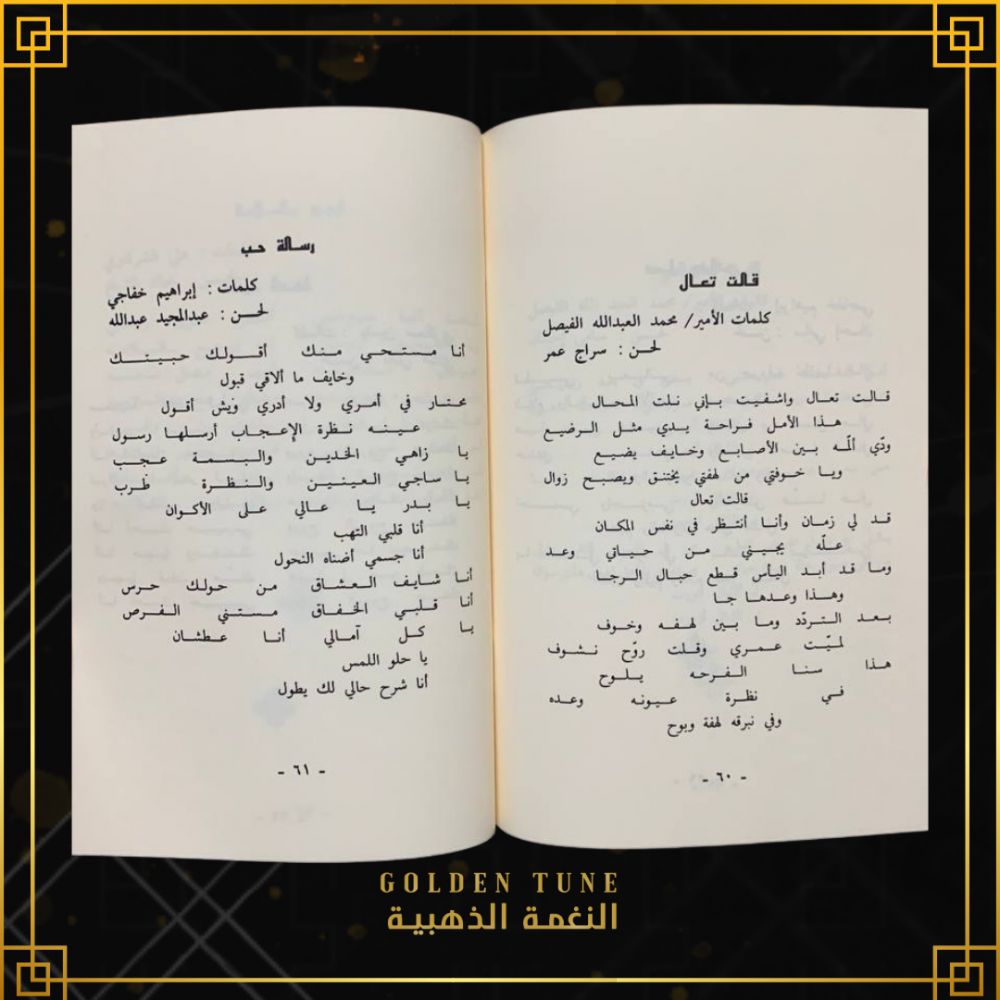 قالت تعال
كلمات الأمير/ محمد العبدالله الفيصل
لحن : سراج عمر
قالت تعال واشفيت بإني نلت المحال
هذا الأمل فراحة يدي مثل الرضيع
ودّي ألمّه بين الأصابع وخايف يضيع
ويا خوفتي من لهفتي يختنق ويصبح زوال
قالت تعال
قد لي زمان وأنا أنتظر في نفس المكان
علّه يجيني من حياتي وعد
وما قد أبد اليأس قطع حبال الرجا
وهذا وعدها جا
بعد التردّد وما بين لهفه وخوف
لميّت عمري وقلت روّح نشوف
هذا سنا الفرحه يلوح
في نظرة عيونه وعده
وفي نبرقه لهفة وبوح
- ٦٠ -
رسالة حب
كلمات : إبراهيم خفاجي
لحن : عبدالمجيد عبدالله
أنا مستحي منك أقولك حبيتك
وخايف ما ألاقي قبول
محتار في أمري ولا أدري ويش أقول
عينه نظرة الإعجاب أرسلها رسول
يا زاهي الخدين والبسمة عجب
يا ساجي العينين والنظرة طرب
يا بدر يا عالي على الأكوان
أنا قلبي التهب
أنا جسمي أضناه النحول
أنا شايف العشاق من حولك حرس
أنا قلبي الخفاق مستني الفرص
يا كل آمالي أنا عطشان
يا حلو اللمس
أنا شرح حالي لك يطول
- ٦١ -
GOLDEN TUNE
النغمة الذهبية